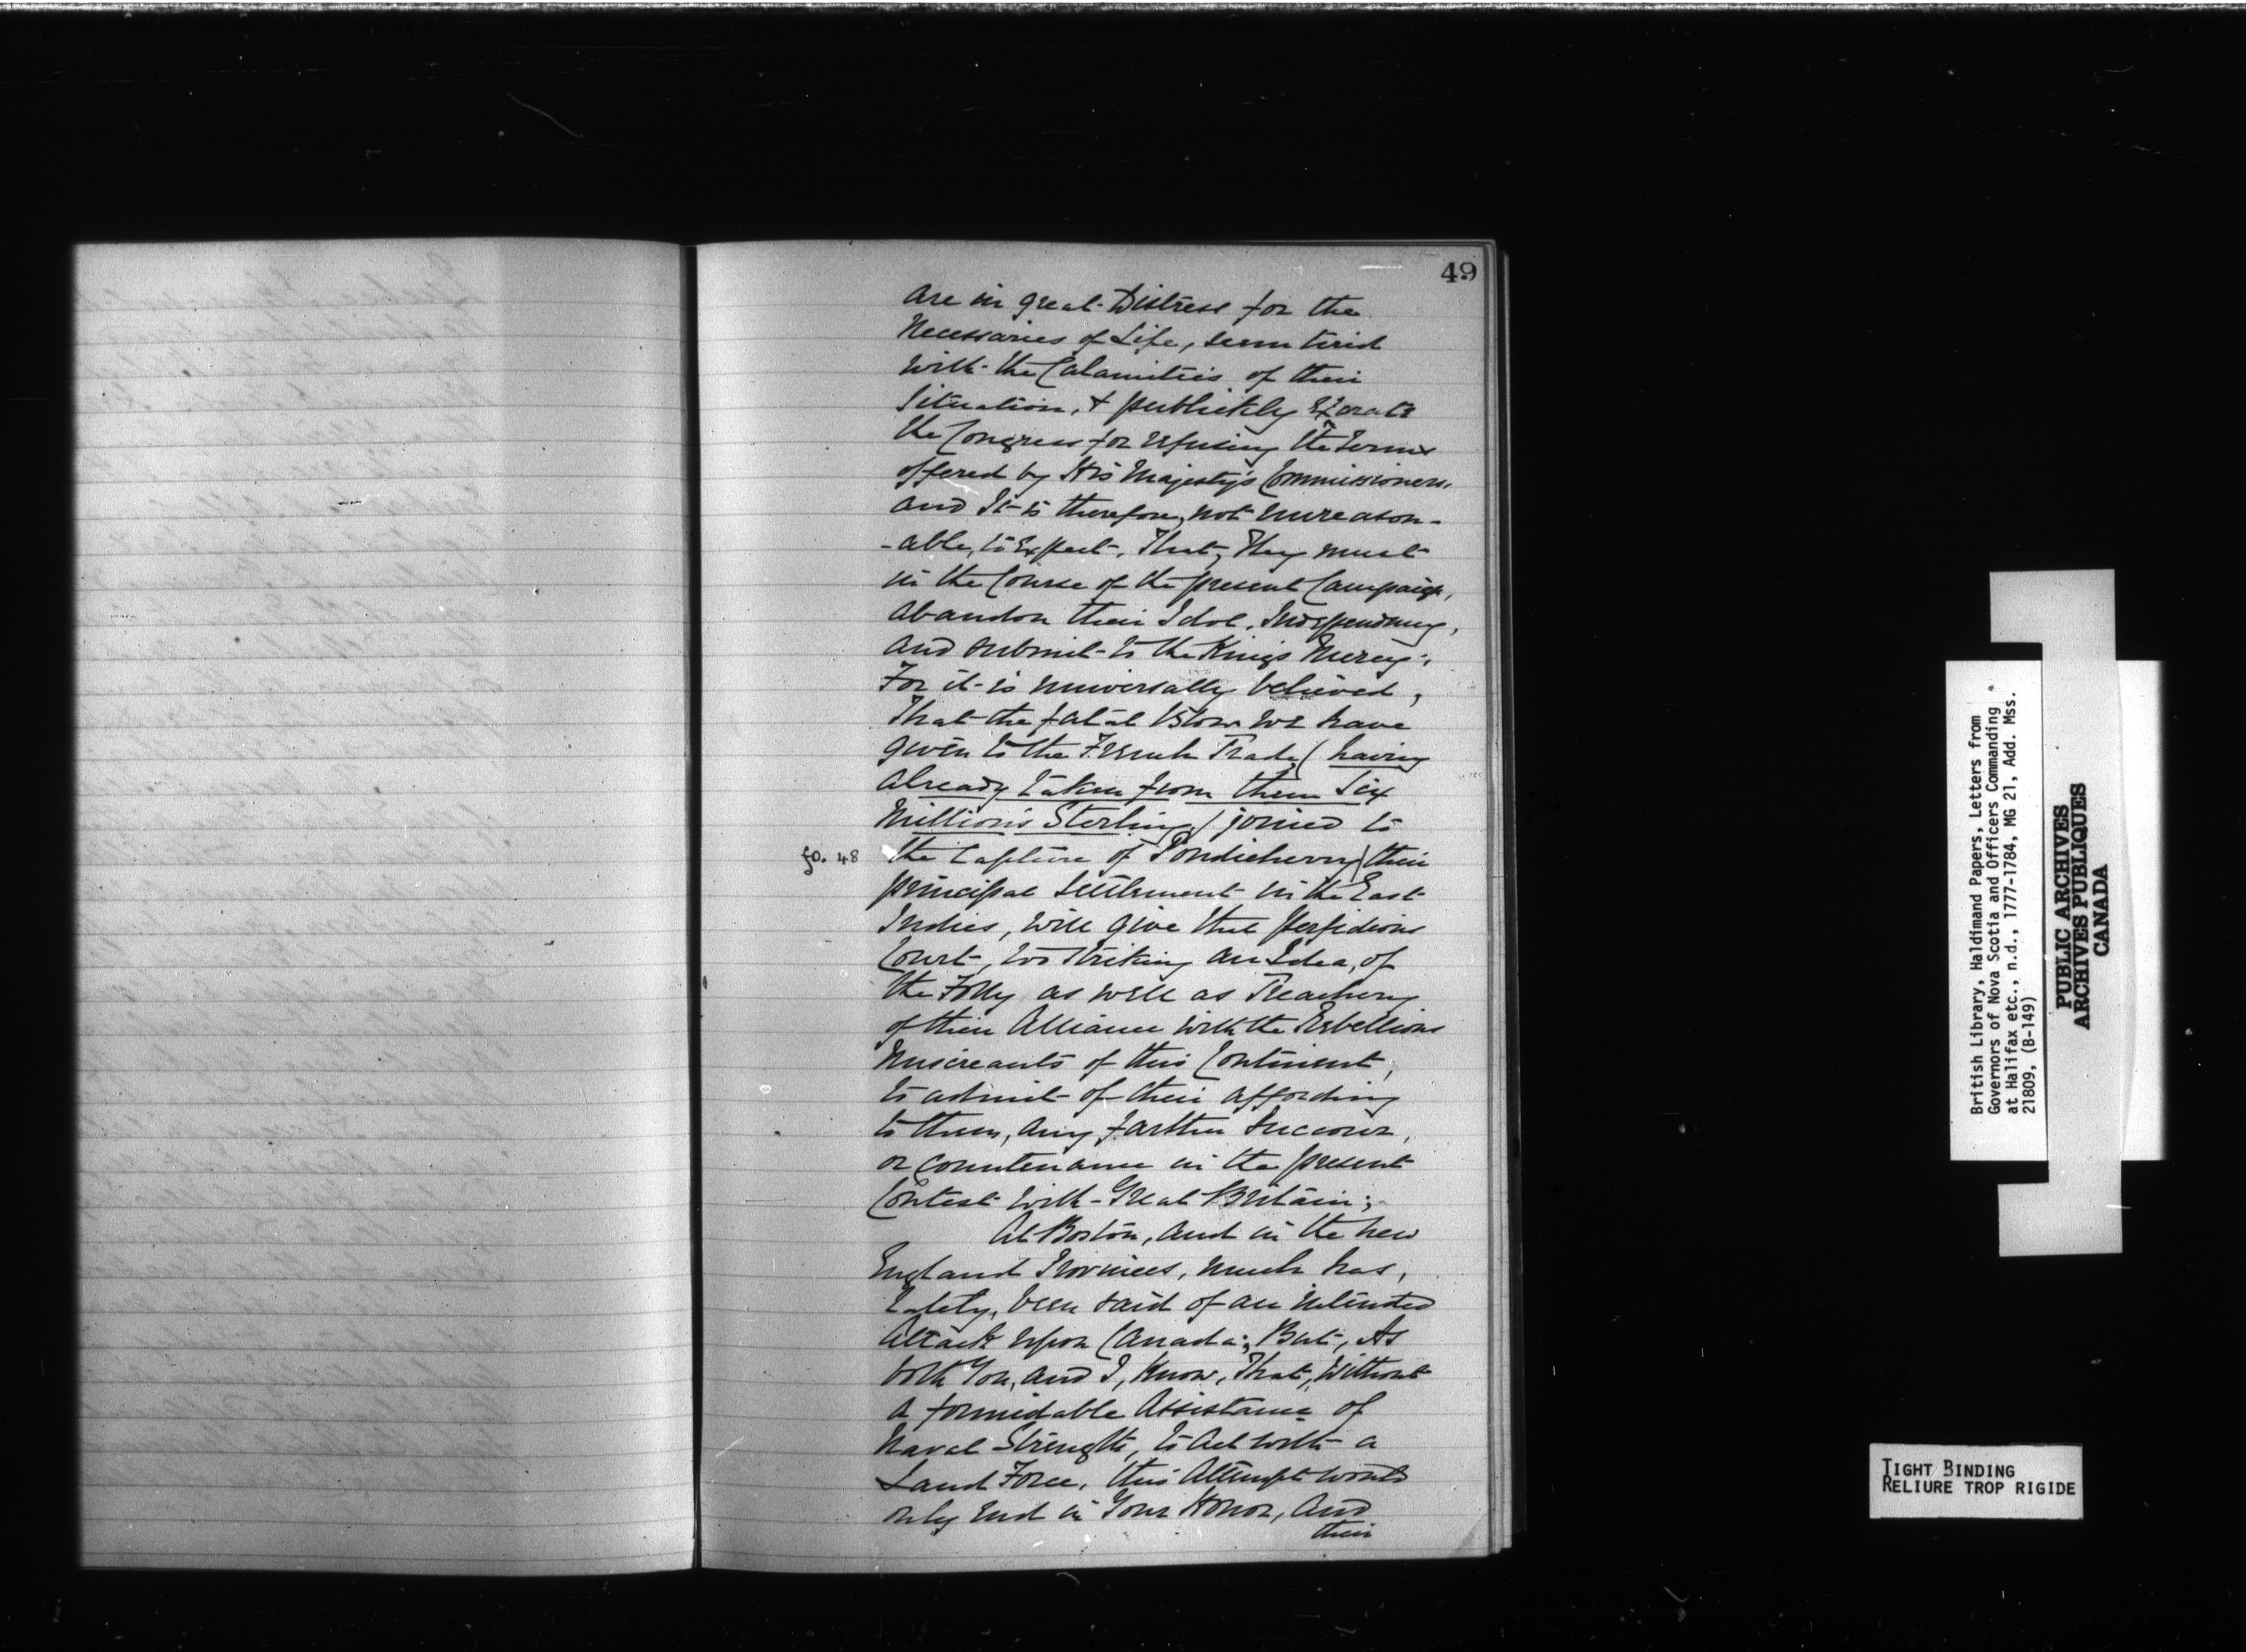 49
are in great Distress for the
Necessaries of Life, seem tired
with the Calamities of their
Situation, & publickly Exorate
the Congress for refusing the terms
offered by His Majesty's Commissioners,
and It is therefore, not unreason-
-able, to Expect, That, They must
in the Course of the present Campaign,
abandon their Idol, Independency,
and submit to the Kings Mercy;,
For it is universally believed,
That the fatal Blow we have
given to the French Trade, (having
already taken from them Six
Millions Sterling) joined to
fo. 48 the Capture of Pondicherry) their
principal Settlement in the East
Indies, will give that perfidious
Court, too striking an Idea, of
the Folly as well as Treachery
of their Alliance with the Rebellious
Miscreants of this Continent,
to admit of their affording
to them, any farther Succour,
or Countenance in the present
Contest with Great Britain;
At Boston, and in the New
England Provinces, much has,
Lately, been said of an intended
Attack upon Canada; But, As
both You, and I, Know, That, Without
a formidable Assistance of
Naval Strength, to Act with a
Land Force, this Attempt would
only End in Your Honor, and
their
British Library, Haldimand Papers, Letters from
Governors of Nova Scotia and Officers Commanding
at Halifax etc., n.d., 1777-1784, MG 21, Add. Mss.
21809, (B-149)
PUBLIC ARCHIVES
ARCHIVES PUBLIQUES
CANADA
TIGHT BINDING
RELIURE TROP RIGIDE